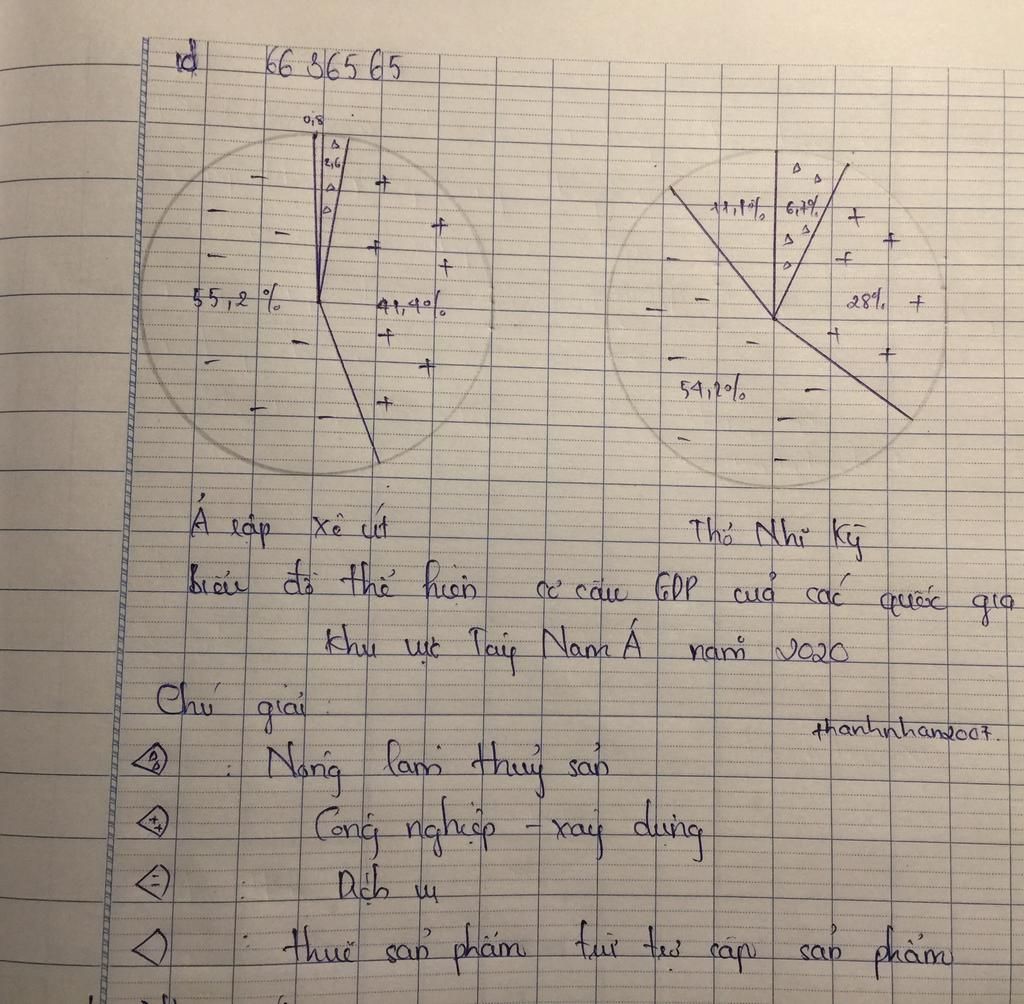 id 66 36565
0,8
2,6
55,2 %
41,4%
11,1%
6,7%
28%
54,2%
Ả rập xê út
Thổ Nhĩ Kỳ
Biểu đồ thể hiện cơ cấu GDP của các quốc gia
khu vực Tây Nam Á năm 2020
Chú giải:
thanhnhan2007.
: Nông lâm thuỷ sản
Công nghiệp - xây dựng
: Dịch vụ
: thuế sản phẩm trừ trợ cấp sản phẩm